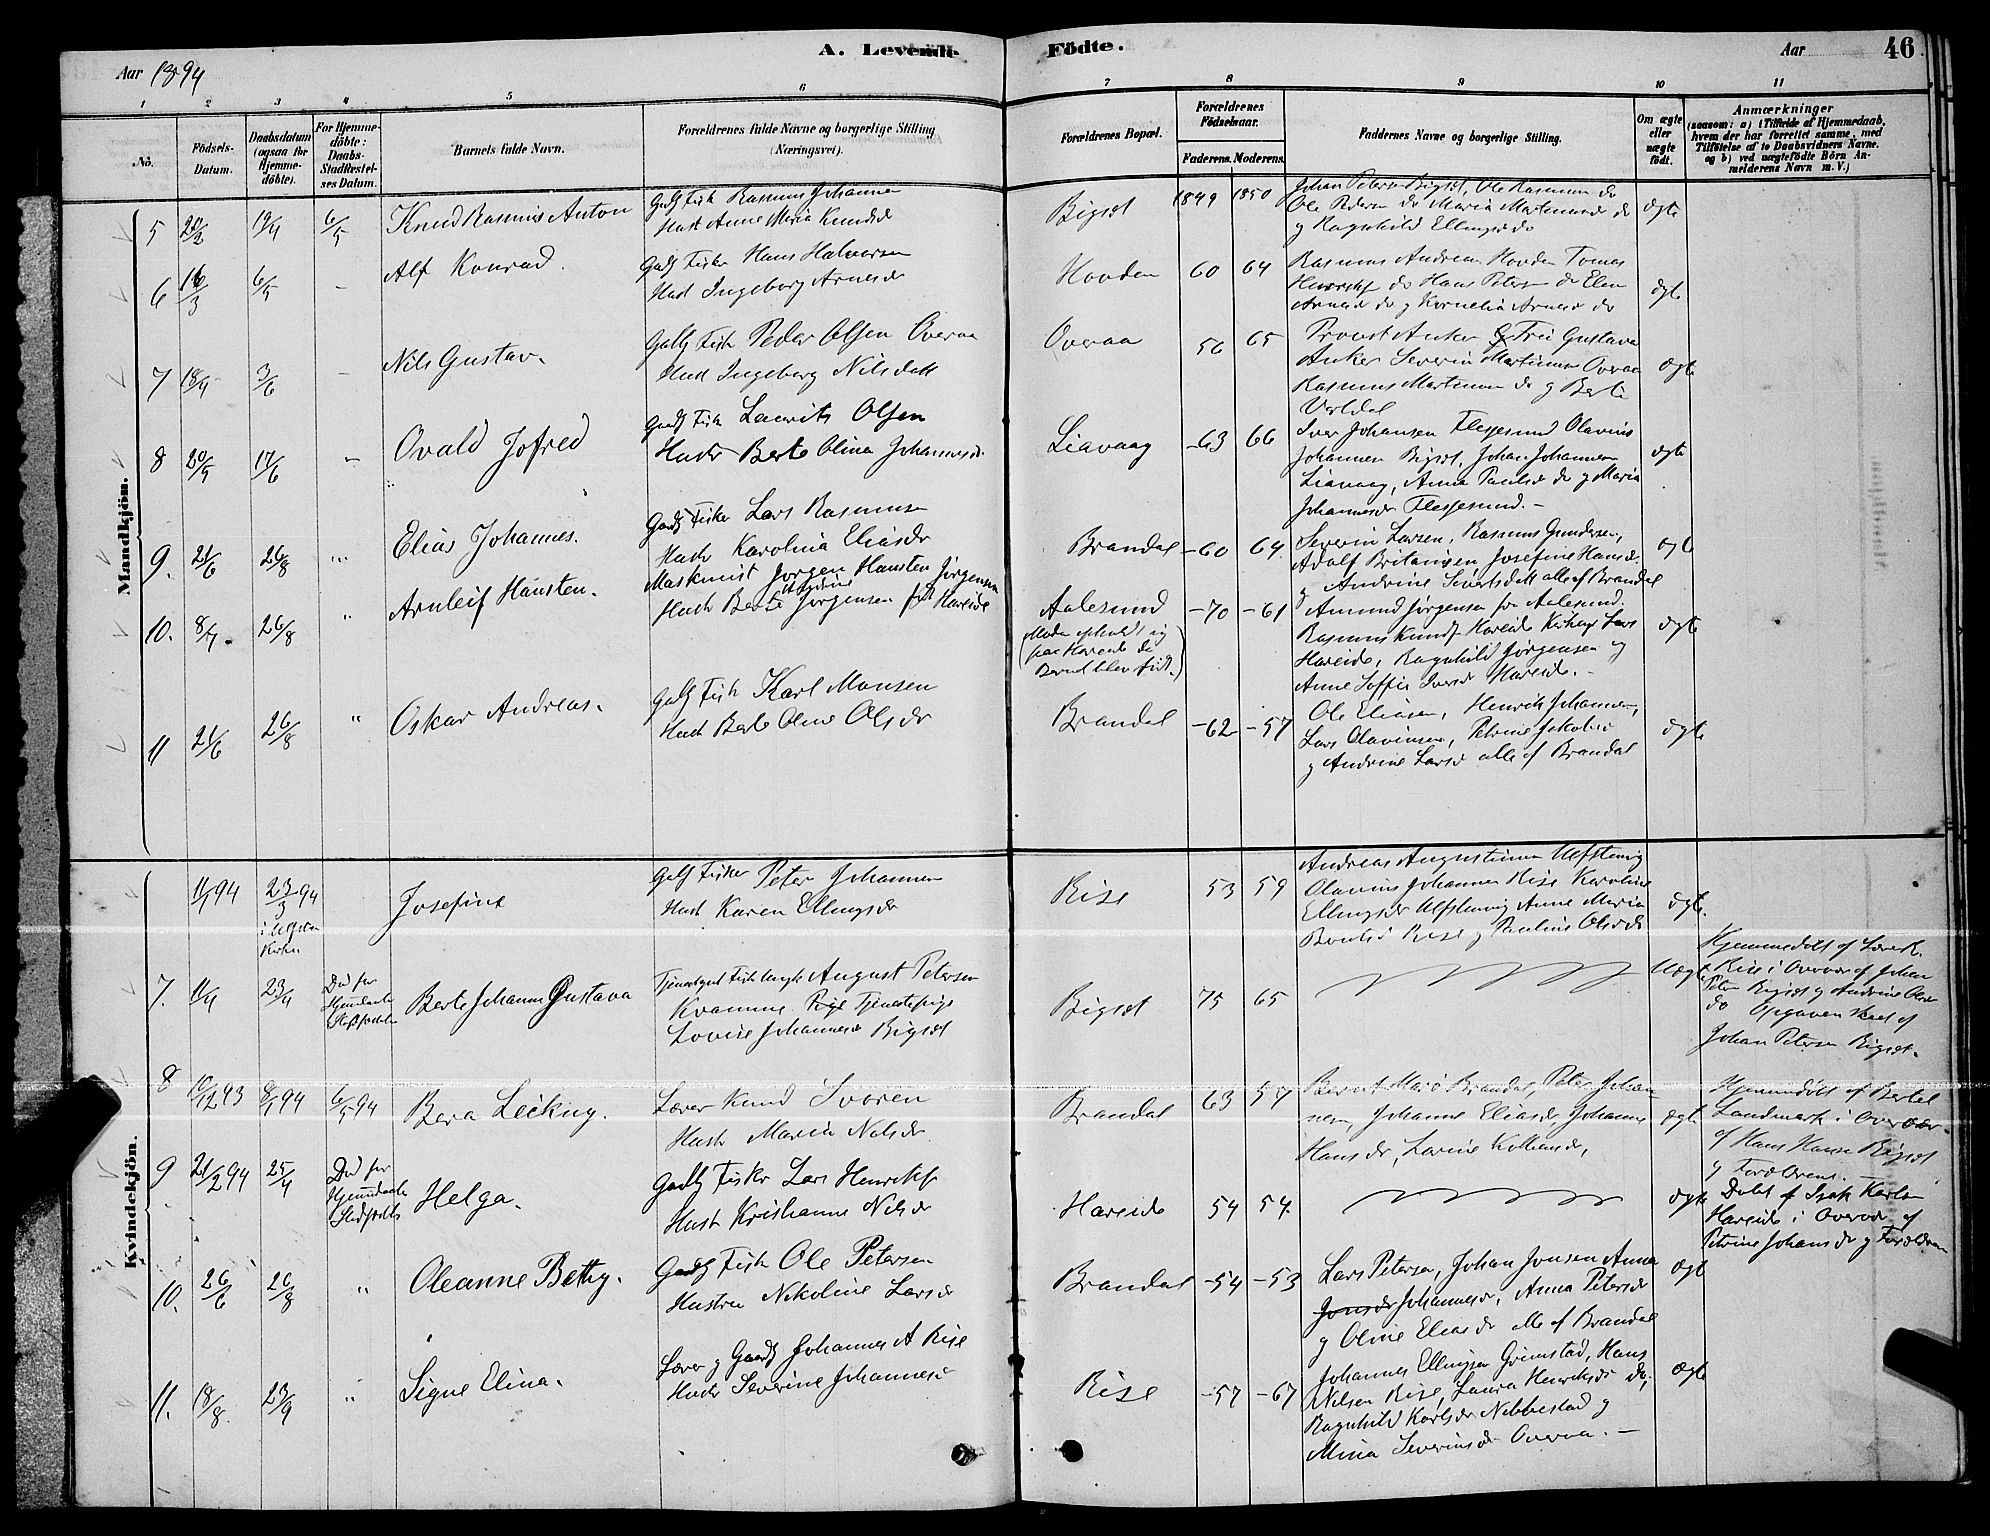 A. Levende Födte.
Aar 1894
Aar 46
1 2 3 4 5 6 7 8 9 10 11
No.
Födsels-Datum.
Daabsdatum (ogsaa for Hjemme-döbte).
For Hjemme-döbte: Daabs-Stadfæstel-ses Datum.
Barnets fulde Navn.
Forældrenes fulde Navne og borgerlige Stilling (Næringsvei).
Forældrenes Bopæl.
Forældrenes Födselsaar.
Faderens. Moderens.
Faddernes Navne og borgerlige Stilling.
Om ægte eller uægte födt.
Anmærkninger
(saasom: a) i Tilfælde af Hjemmedaab, hvem der har forrettet samme, med Tilföielse af to Daabsvidners Navne. og b) ved uægtefödte Börn An-melderens Navn m. V.)
Mandkjön.
5 19/4 6/5 Knud Rasmus Anton
Gaardb Fisk Rasmus Johannesen
Hust Anne Maria Knudsd
Bigset 1849 1850
Johan Petersen Bigset, Ole Rasmusen do
Ole Pedersen do Maria Martinusd do
og Ragnhild Ellingsd do
ægte
6 16/3 6/5 - Alf Konrad.
Gaardb Fisker Hans Halvorsen
Hust Ingeborg Arnesd
Hovden 60 64
Rasmus Andreasen Hovden Tomas
Henriks do Hans Petersen do Elen
Arnesd do og Kornelia Arnesd do
ægte
7 18/4 3/6 - Nils Gustav.
Gaardb Fisk Peder Olsen Overaa
Hust Ingeborg Nilsdatt
Overaa 56 65
Provst Anker og Frue Gustava
Anker Severin Martinusen Overaa
Rasmus Martinusen do og Berte
ægte
8 20/5 17/6 - Ovald Jofred
Gaardb Fisk Laurits Olsen
Hustr Berte Olina Johannesd.
Liavaag -63 66
Iver Johansen Flessesund Olavius
Johannesen Bigset, Johan Johannesen
Liavaag, Anna Paulsd do og Maria
Johannesd Flessesund. -
ægte
9. 21/6 26/8 " Elias Johannes.
Gaardb Fisker Lars Rasmusen
Hustr Karolina Eliasdr
Brandal -60 64
Severin Larsen, Rasmus Gundersen,
Adolf Josefine Hansd
og Andrine Sivertsdatt alle af Brandal
ægte
10. 8/7. 26/8 " Arnleif Hansten.
Maskinist Jørgen Hansten Jørgensen
Hustr Berte Jørgensen født Hareide
Aalesund -70 -61
(Moder opholdt sig
paa Hareide da
Barnet blev født.)
Amund Jørgensen fra Aalesund.
Rasmus Knuds Hareide Lars
Hareide, Ragnhild Jørgensen og
Anne Soffie Iversd Hareide. -
ægte
11 21/6 26/8 " Oskar Andreas.
Gaardb Fisk Karl Monsen
Hust Berte Oline Olsdr
Brandal -62 -57
Ole Eliasen, Henrik Johannesen,
Lars Olavinsen, Petrine Jakobsd
og Andrine Larsd alle af Brandal
ægte
Kvindekjön.
11/1 94 23/3 94
i Ulfsten Kirken
Josefine
Gaardb Fisker Peter Johannesen
Hust Karen Ellingsdr
Rise 53 59
Andreas Augustinusen Ulfstenvig
Olavius Johannesen Rise Karoline
Ellingsdr Ulfstenvig Anne Maria
Rise og Pauline Olsdr
ægte.
7. 11/4 23/4 Død før
Hjemdaabs
Stadfæstelse
Berte Johanne Gustava
Tjenestegut Fisk ungk August Petersen
Kvamme Pige Tjenestepige
Lovise Johannesd Bigset
Bigset 75 65
Uægte
Hjemmedøbt af Lars R.
Rise i Overvær af Johan
Petersen Bigset og Andrine Olsdr
do Opgaven skeet af
Johan Petersen Bigset.
8 10/12 93 8/1 94 6/5 94 Bera
Lærer Knud Svoren
Hustr Maria Nilsdr
Brandal 63 57
Bernt Brandal, Peter Johan-
nesen, Johanne Eliasdr, Johanne
Hansdr, Lovise
ægte
Hjemmedøbt af Bertel
Landmark i Overvær
af Hans Hansen Bigset
og Forældrene.
9 21/2 94 25/4 Død før
Hjemdaabs
Stadfæstels
Helga.
Gaardb Fisker Lars Henriks
Hust Kristianne Nilsdr
Hareide 54 54.
ægte
Døbt af Isak Karlsen
Hareide i Overvær af
Petrine Johansdr og Forældrene
10. 26/6 26/8 " Oleanne Bethy.
Gaardb Fisk Ole Petersen
Hustru Nikoline Larsdr
Brandal -54 -53
Lars Petersen, Johan Jonsen Anna
Jonsdr Johannesdr, Anna Petersdr
og Oline Eliasdr alle af Brandal
ægt
11. 18/8. 23/9 " Signe Elina.
Lærer og Gaardb Johannes A Rise
Hustr Severine Johannesd
Rise -57 -67
Johannes Ellingsen Grimstad, Hans
Nilsen Rise, Laura Henriksdr do,
Ragnhild Karlsdr Nibbestad og
Mina Severinsdr Overaa. -
ægte